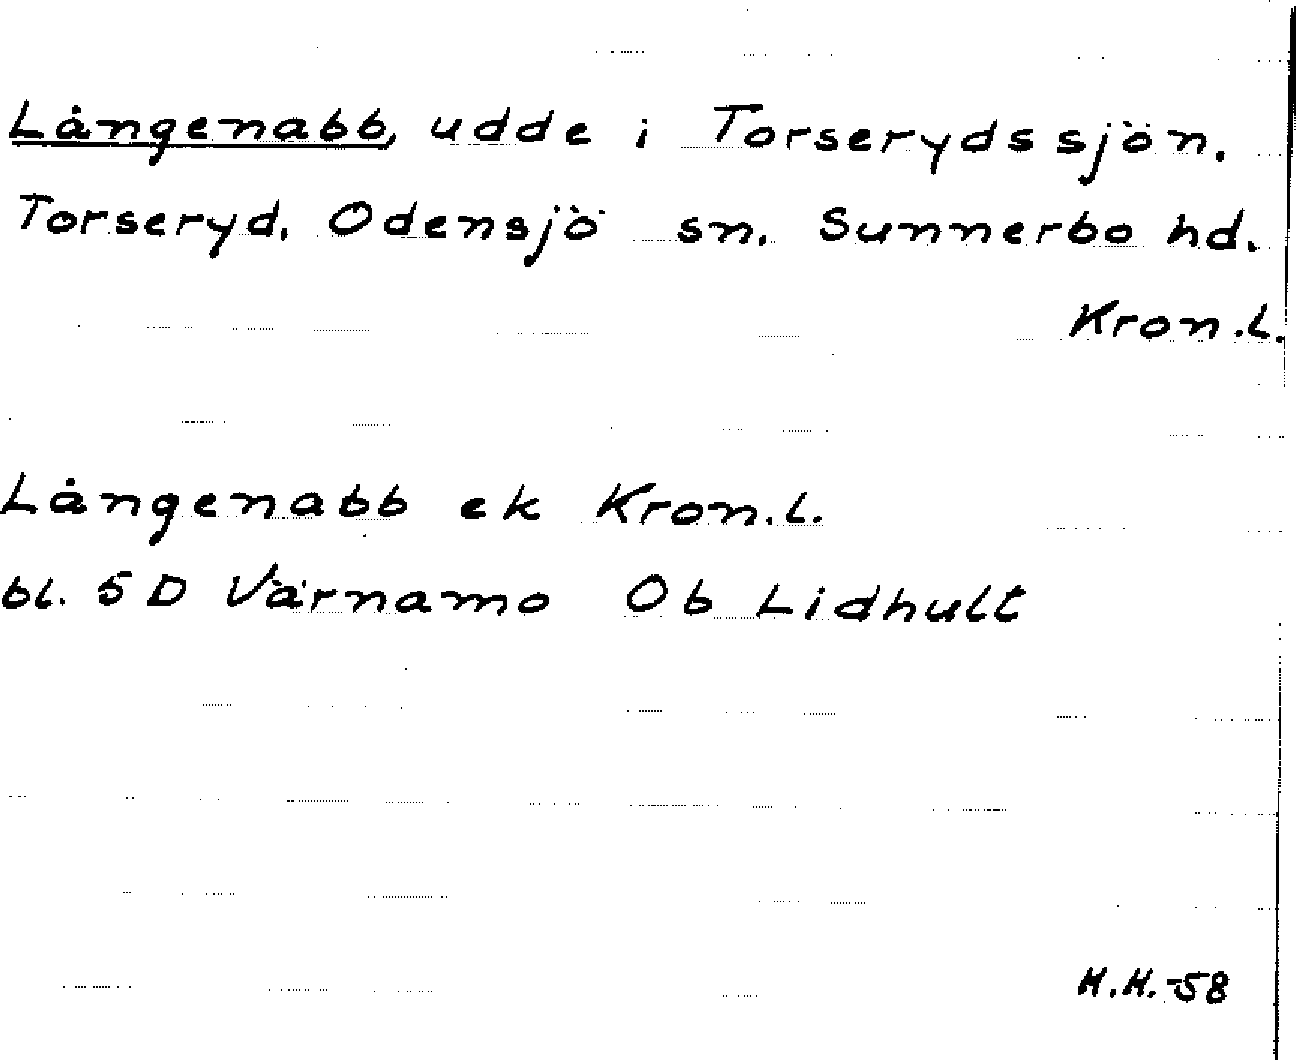 Långenabb, udde i Torserydssjön.
Torseryd. Odensjö sn. Sunnerbo hd.
Kron.l.
Långenabb ek Kron.l.
bl. 5 D Värnamo Ob Lidhult
H.H.-58